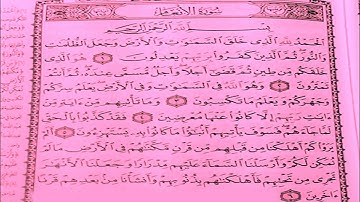 سورة الأنعام
بسم الله الرحمن الرحيم
الحمد لله الذى خلق السموت والأرض وجعل الظلمت
والنور ثم الذين كفروا بربهم يعدلون ١ هو الذى
خلقكم من طين ثم قضى أجلا وأجل مسمى عنده ثم أنتم
تمترون ٢ وهو الله فى السموت وفى الأرض يعلم سركم
وجهركم ويعلم ما تكسبون ٣ وما تأتيهم من ءاية من
ءايت ربهم إلا كانوا عنها معرضين ٤ فقد كذبوا بالحق
لما جاءهم فسوف يأتيهم أنبؤا ما كانوا به يستهزءون ٥ ألم
يروا كم أهلكنا من قبلهم من قرن مكنهم فى الأرض ما لم
نمكن لكم وأرسلنا السماء عليهم مدرارا وجعلنا الأنهر
تجرى من تحتهم فأهلكنهم بذنوبهم وأنشأنا من بعدهم قرنا
ءاخرين ٦